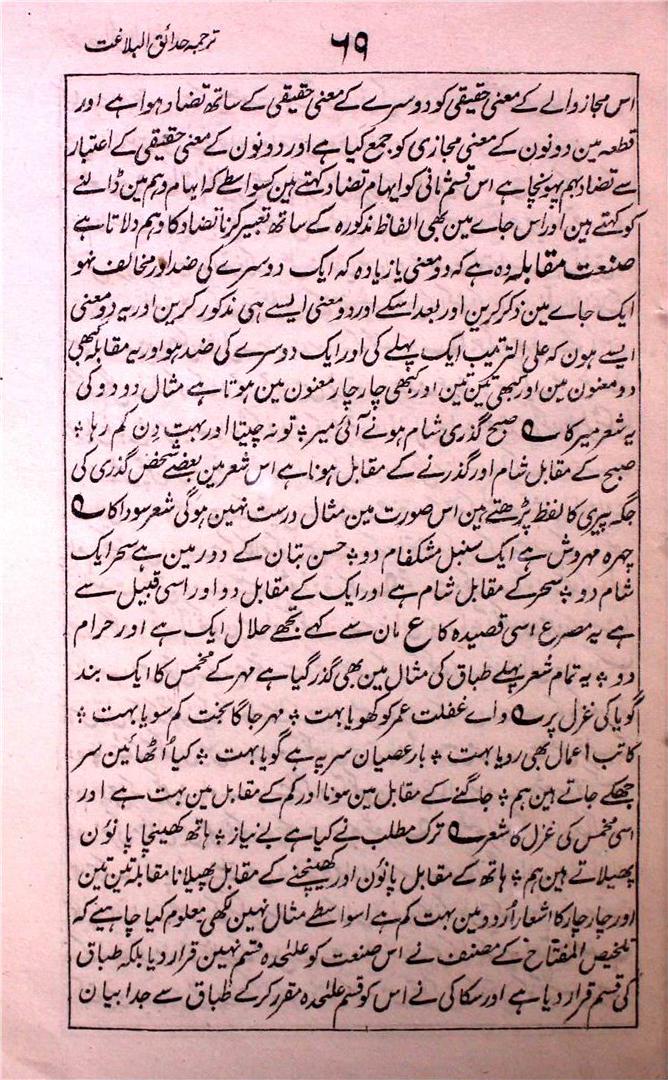 ترجمہ حدائق البلاغت
۶۹
اس مجاز والے کے معنی حقیقی کو دوسرے کے معنی حقیقی کے ساتھ تضاد ہوا ہے اور
قطعہ مین دونون کے معنی مجازی کو جمع کیا ہے اور دونون کے معنی حقیقی کے اعتبار
سے تضاد بہم پہونچا ہے اس قسم ثانی کو ایہام تضاد کہتے ہین کسواسطے کہ ایہام وہم مین ڈالنے
کو کہتے ہین اور اس جاے مین بھی الفاظ مذکورہ کے ساتھ تعبیر کرنا تضاد کا وہم دلاتا ہے
صنعت مقابلہ وہ ہے کہ دو معنی یا زیادہ کہ ایک دوسرے کی ضد اور مخالف نہو
ایک جاے مین ذکر کرین اور بعد اسکے اور دو معنی ایسے ہی مذکور کرین اور یہ دو معنی
ایسے ہون کہ علی الترتیب ایک پہلے کی اور ایک دوسرے کی ضد ہو اور یہ مقابلہ کبھی
دو معنون مین اور کبھی تین تین اور کبھی چار چار معنون مین ہوتا ہے مثال دو دو کی
یہ شعر میر کا ؎ صبح گذری شام ہونے آئی میر ؞ تو نہ چیتا اور بہت دن کم رہا ؞
صبح کے مقابل شام اور گذرنے کے مقابل ہونا ہے اس شعر مین بعضے شخص گذری کی
جگہ پیری کا لفظ پڑھتے ہین اس صورت مین مثال درست نہین ہوگی شعر سودا کا ؎
چہرہ مہروش ہے ایک سنبل مشکفام دو ؞ حسن بتان کے دور مین ہے سحر ایک
شام دو ؞ سحر کے مقابل شام ہے اور ایک کے مقابل دو اور اسی قبیل سے
ہے یہ مصرع اسی قصیدہ کا ع مان سے کہے تجھے حلال ایک ہے اور حرام
دو ؞ یہ تمام شعر پہلے طباق کی مثال مین بھی گذر گیا ہے مہر کے مخمس کا ایک بند
گویا کی غزل پر ؎ واے غفلت عمر کو کھویا بہت ؞ مہر جاگا بخت کم سویا بہت ؞
کاتب اعمال بھی رویا بہت ؞ بار عصیان سر پہ ہے گویا بہت ؞ کیا اُٹھائین سر
جھکے جاتے ہین ہم ؞ جاگنے کے مقابل مین سونا اور کم کے مقابل مین بہت ہے اور
اسی مخمس کی غزل کا شعر ؎ ترک مطلب نے کیا ہے بے نیاز ؞ ہاتھ کھینچا پانؤن
پھیلاتے ہین ہم ؞ ہاتھ کے مقابل پانؤن اور کھینچنے کے مقابل پھیلانا مقابلہ تین تین
اور چار چار کا اشعار اُردو مین بہت کم ہے اسواسطے مثال نہین لکھی معلوم کیا چاہیے کہ
تلخیص المفتاح کے مصنف نے اس صنعت کو علٰحدہ قسم نہین قرار دیا بلکہ طباق
کی قسم قرار دیا ہے اور سکاکی نے اس کو قسم علٰحدہ مقرر کرکے طباق سے جدا بیان